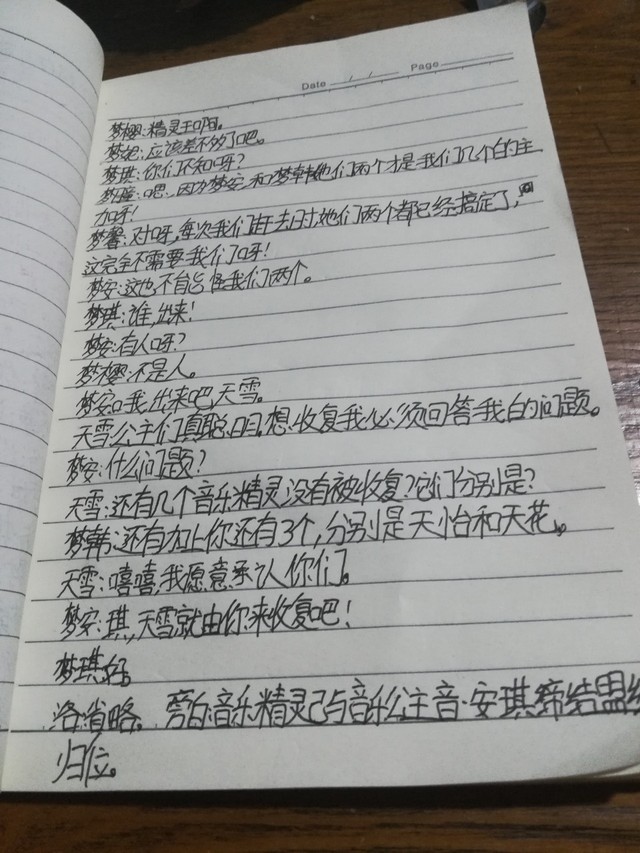 Date / / Page
梦樱:精灵王啊。
梦妮:应该差不多了吧。
梦琪:你们不知呀?
梦瞳:吧,因为梦安和梦韩她们两个才是我们几个的主
力呀!
梦馨:对呀,每次我们赶去时她们两个都已经搞定了,
这完全不需要我们呀!
梦安:这也不能怪我们两个。
梦琪:谁,出来!
梦安:有人呀?
梦樱:不是人。
梦安:我出来吧,天雪。
天雪:公主们真聪明,想收复我必须回答我的问题。
梦安:什么问题?
天雪:还有几个音乐精灵没有被收复?它们分别是?
梦韩:还有加上你还有3个,分别是天怡和天花。
天雪:嘻嘻,我愿意承认你们。
梦安:琪,天雪就由你来收复吧!
梦琪:好。
洛省略。旁白:音乐精灵已与音乐公主音·安琪缔结盟约
归位。